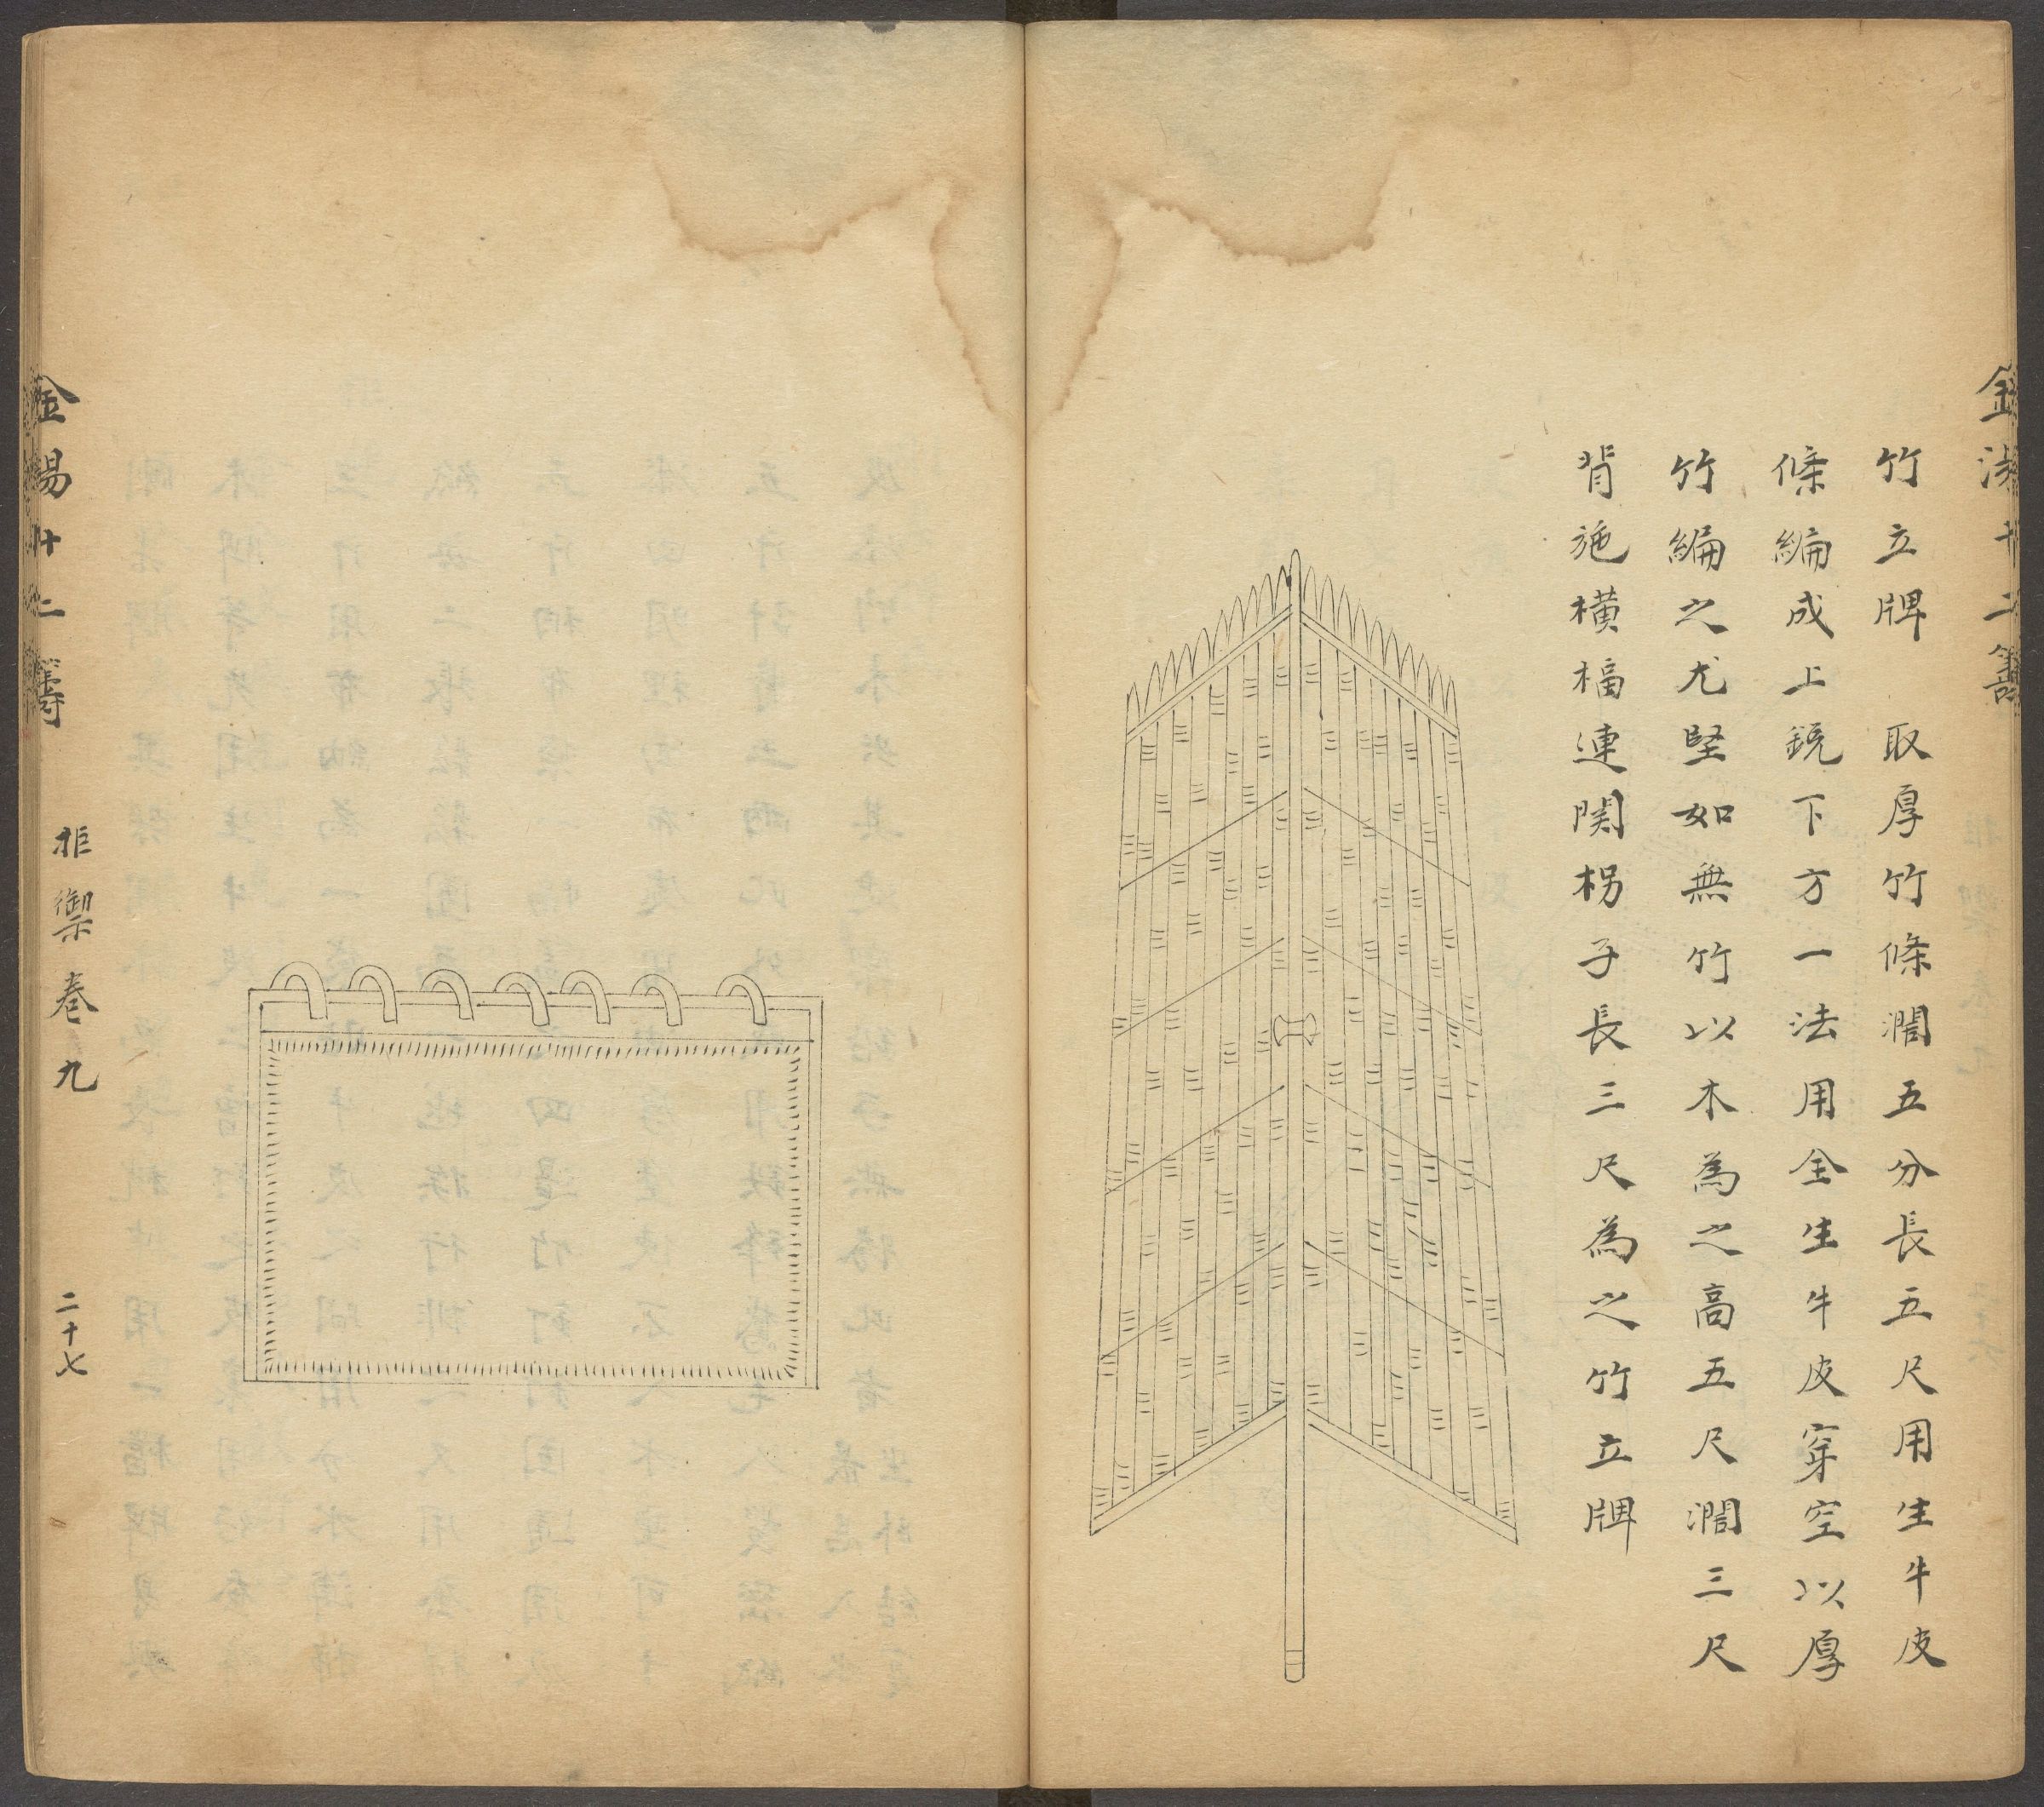 竹立牌　取厚竹條濶五分長五尺用生牛皮
條編成上銳下方一法用全生牛皮穿空以厚
竹編之尤堅如無竹以木為之高五尺濶三尺
背施橫楅連関柺子長三尺為之竹立牌
金湯十二籌
拒禦卷九
二十七